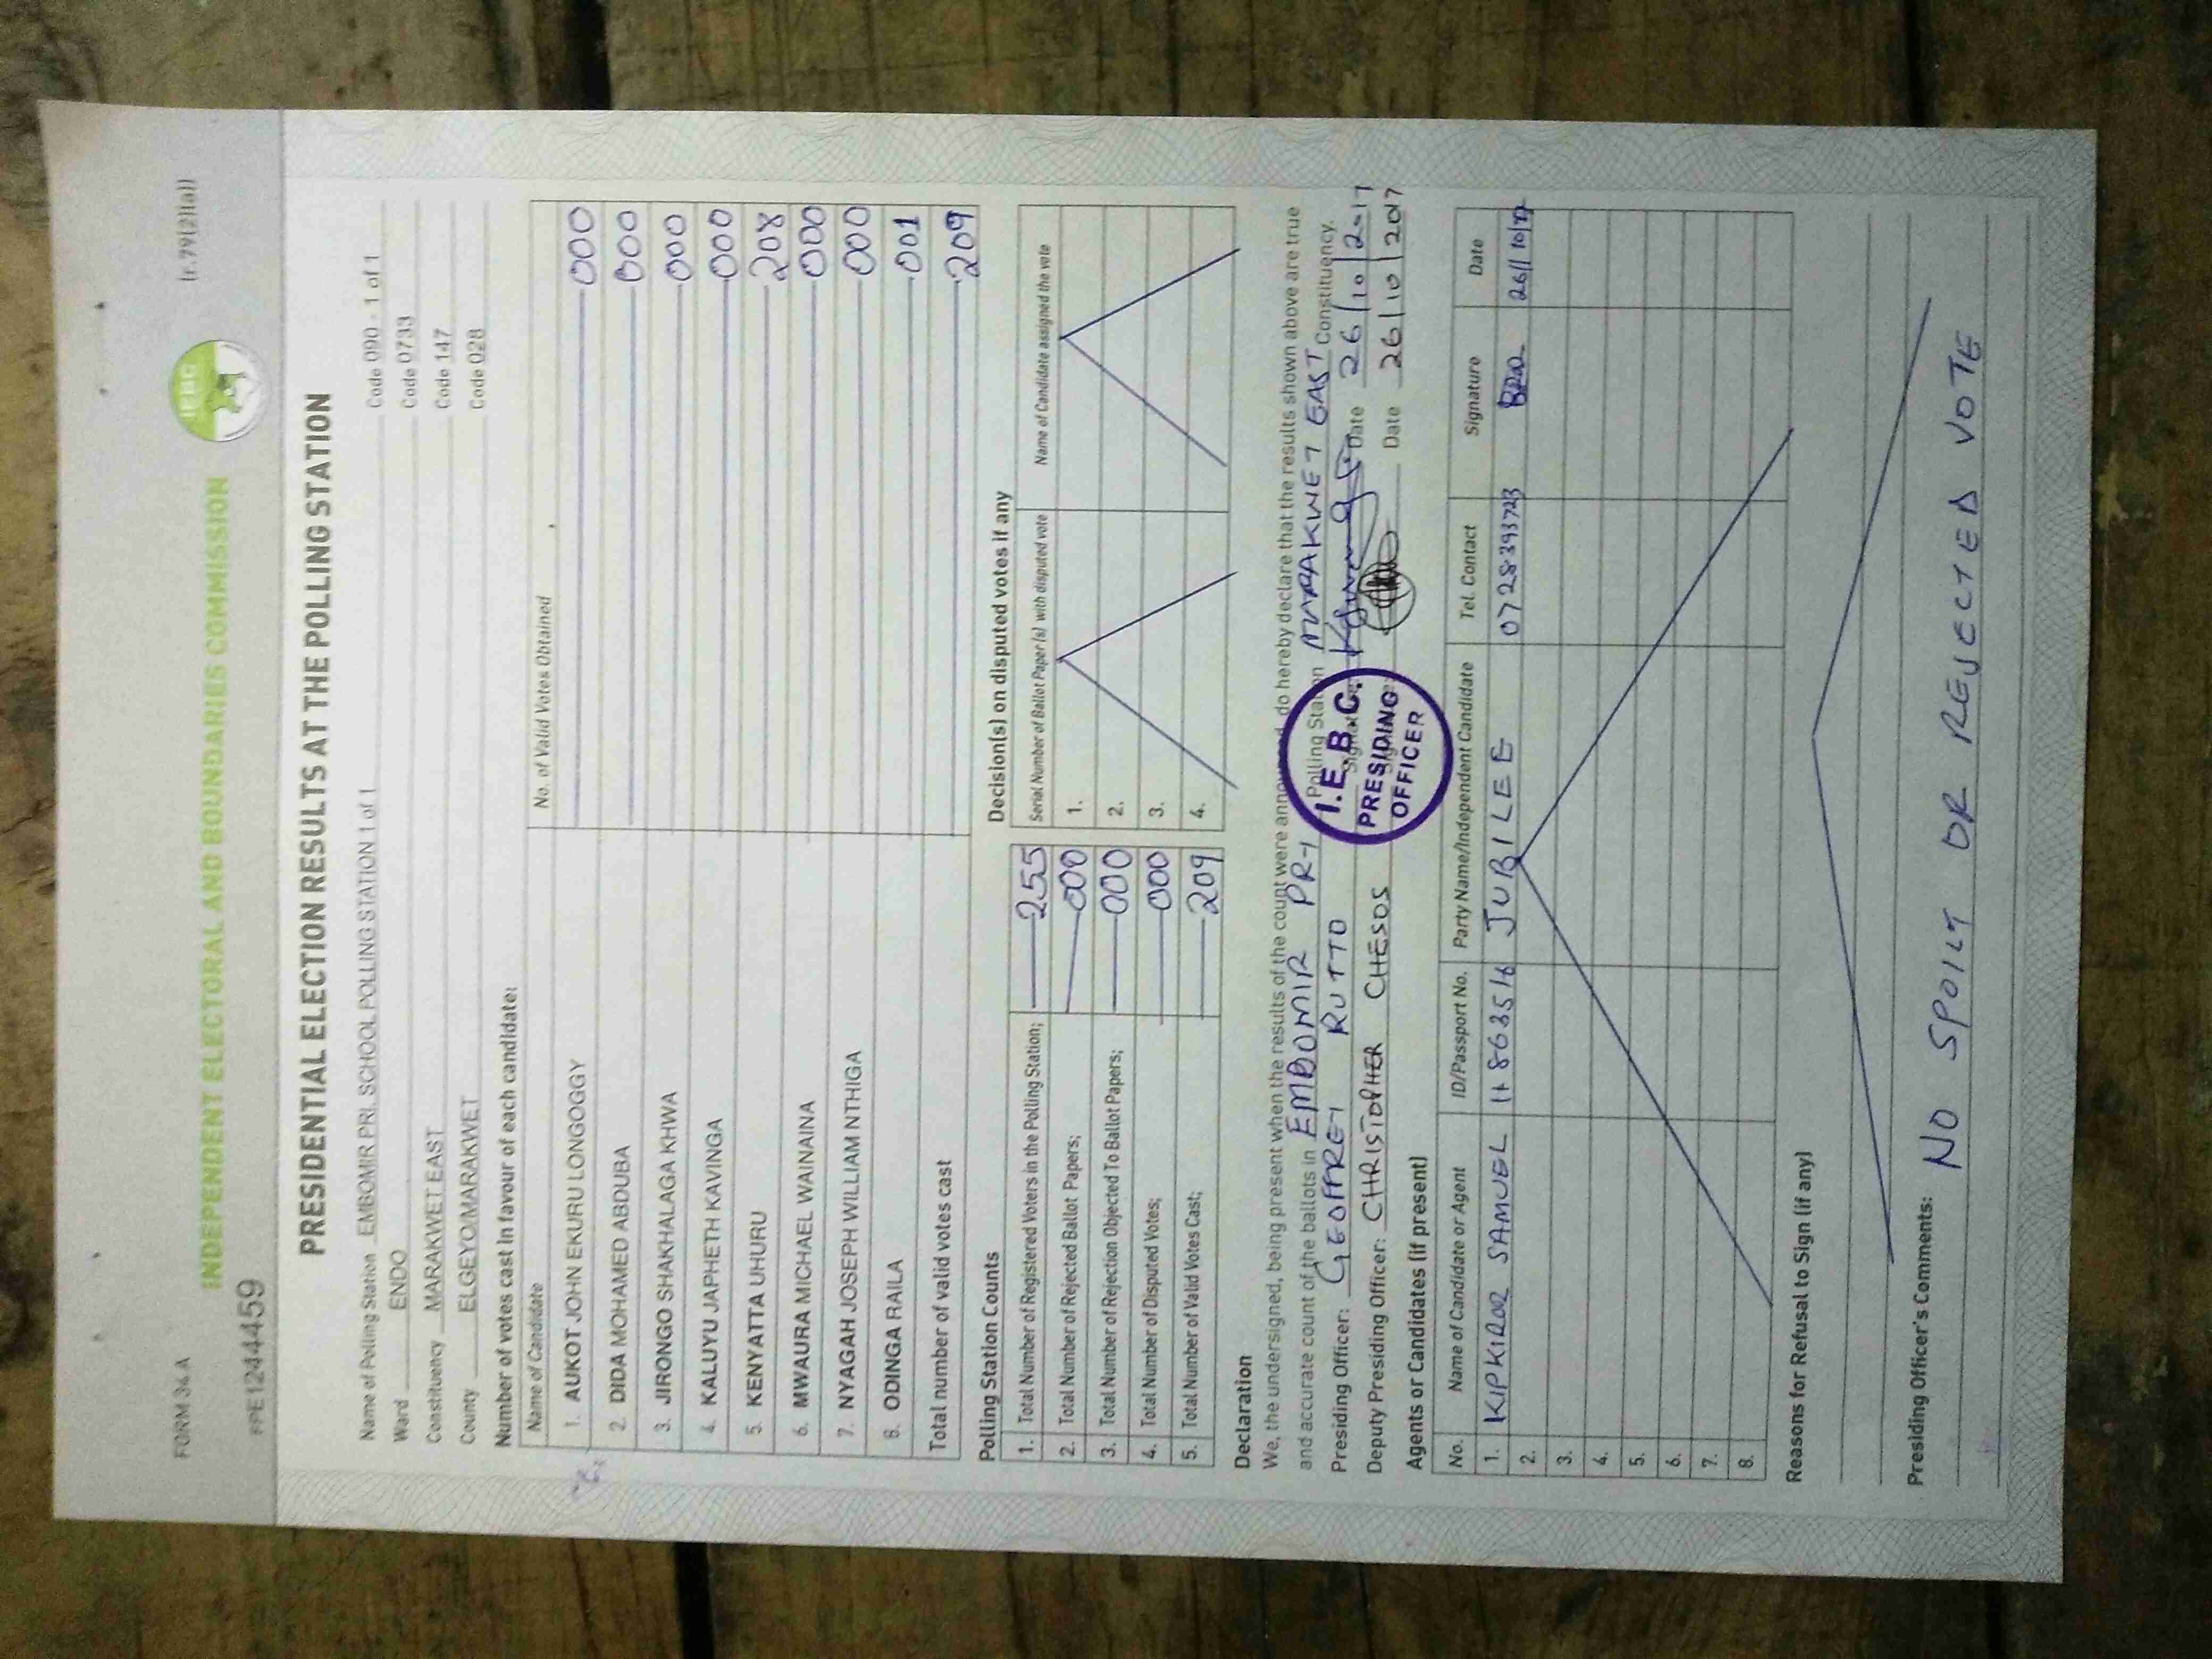 FORM 34 A (r.79(2)(a))
IEBC
INDEPENDENT ELECTORAL AND BOUNDARIES COMMISSION
PRESIDENTIAL ELECTION RESULTS AT THE POLLING STATION
Name of Polling Station EMBOMIR PRI. SCHOOL POLLING STATION 1 of 1 Code 090 - 1 of 1
Ward ENDO Code 0733
Constituency MARAKWET EAST Code 147
County ELGEYO/MARAKWET Code 028
Number of votes cast in favour of each candidate:
Name of Candidate No. of Valid Votes Obtained
1. AUKOT JOHN EKURU LONGOGGY 000
2. DIDA MOHAMED ABDUBA 000
3. JIRONGO SHAKHALAGA KHWA 000
4. KALUYU JAPHETH KAVINGA 000
5. KENYATTA UHURU 208
6. MWAURA MICHAEL WAINAINA 000
7. NYAGAH JOSEPH WILLIAM NTHIGA 000
8. ODINGA RAILA 001
Total number of valid votes cast 209
Polling Station Counts
1. Total Number of Registered Voters in the Polling Station; 255
2. Total Number of Rejected Ballot Papers; 000
3. Total Number of Rejection Objected To Ballot Papers; 000
4. Total Number of Disputed Votes; 000
5. Total Number of Valid Votes Cast; 209
Decision(s) on disputed votes if any
Serial Number of Ballot Paper (s) with disputed vote Name of Candidate assigned the vote
1.
2.
3.
4.
Declaration
We, the undersigned, being present when the results of the count were announced, do hereby declare that the results shown above are true
and accurate count of the ballots in EMBOMIR PRI Polling Station MARAKWET EAST Constituency.
Presiding Officer: GEOFFREY RUTTO Date 26/10/2017
Deputy Presiding Officer: CHRISTOPHER CHESOS Date 26/10/2017
I.E.B.C.
PRESIDING
OFFICER
Agents or Candidates (if present)
No. Name of Candidate or Agent ID/Passport No. Party Name/Independent Candidate Tel. Contact Signature Date
1. KIPKIROR SAMUEL JUBILEE 0728393723 26/10/17
2.
3.
4.
5.
6.
7.
8.
Reasons for Refusal to Sign (if any)
Presiding Officer's Comments:
NO SPOILT OR REJECTED VOTE